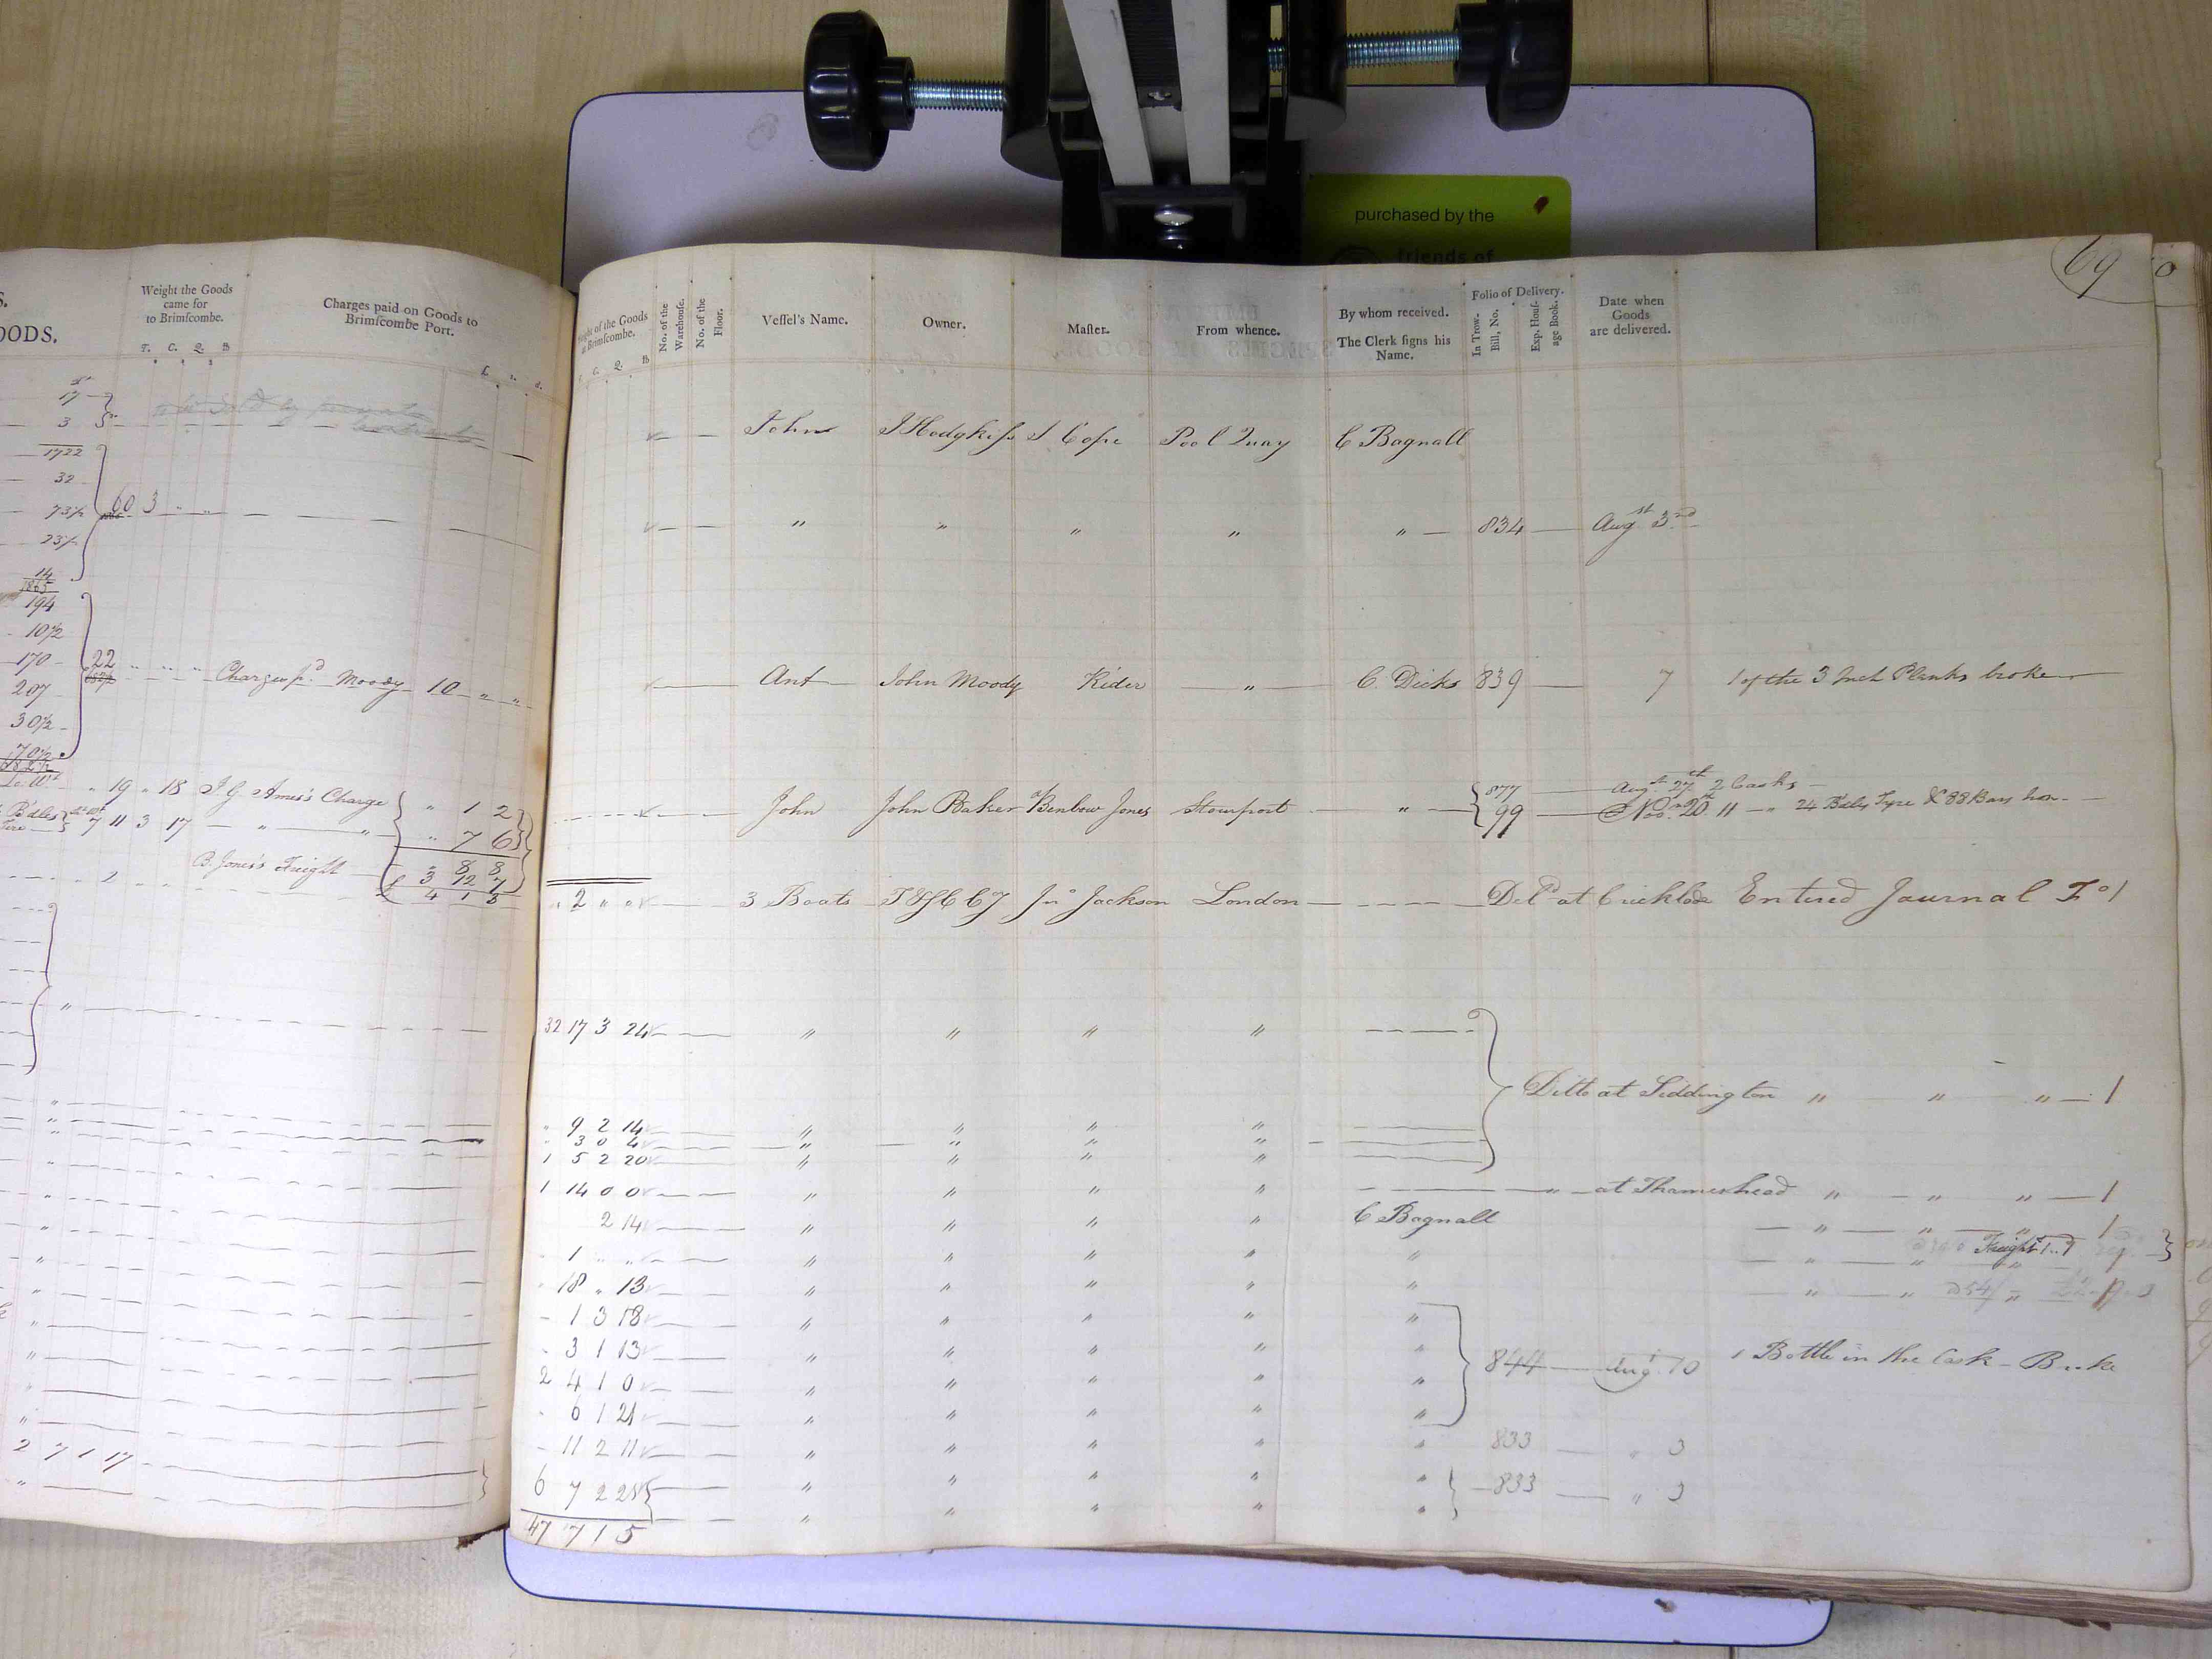 purchased by the
friends of
69
GOODS.
Weight the Goods came for to Brimſcombe.
T. C. Q. lb
Charges paid on Goods to Brimſcombe Port.
£. s. d.
17
3
1722
32
73½
23½
14
1865
60 3 " "
194
10½
170
207
30½
70½
22 " " " Charges pd. Moody 10 " "
" 19 " 18 J G. Ames's Charge " 1 2
Bdles 7 11 3 17 — " — " " 7 6
" 8 8
B. Jones's Freight 3 12 7
£ 4 1 3
2
2 7 1 17
Weight of the Goods at Brimſcombe.
T. C. Q. lb
No. of the Warehouſe.
No. of the Floor.
Veſſel's Name.
Owner.
Maſter.
From whence.
By whom received.
The Clerk ſigns his Name.
Folio of Delivery.
In Trow-Bill, No.
Exp. Houſ-age Book.
Date when Goods are delivered.
John J Hodgkiss J Cope Pool Quay C Bagnall
" " " " " — 834 — Augst 3rd
Ant John Moody Rider — " — C. Dicks 839 — 7 1 of the 3 Inch Planks broke
877 — Augst 27th 2 Casks —
John John Baker Benbow Jones Stourport " 99 — Nov. 20th 11 — " 24 Bdls Tyre & 88 Bars Iron —
" 2 " 0 3 Boats J Jno Jackson London — Deld at Cricklade Entered Journal Fo 1
32 17 3 24 " " " "
Ditto at Siddington " " " — 1
" 9 2 14 " " " "
" 3 0 4 " " " "
1 5 2 20 " " " "
1 14 0 0 " " " " — " — at Thameshead " — " " — 1
2 14 " " " " C Bagnall — " — " — " 1
Freight 1..7
" 1 " " " " " " " — " — " "
" 18 " 13 " " " " " " — "
" 1 3 18 " " " " "
" 3 1 13 " " " " "
844 — Augt. 10 1 Bottle in the Cask — Broke
2 4 1 0 " " " " "
" 6 1 21 " " " " "
" 11 2 11 " " " " " 833 — " 3
6 7 2 25 " " " " " 833 — " 3
" " " " "
47 7 1 5